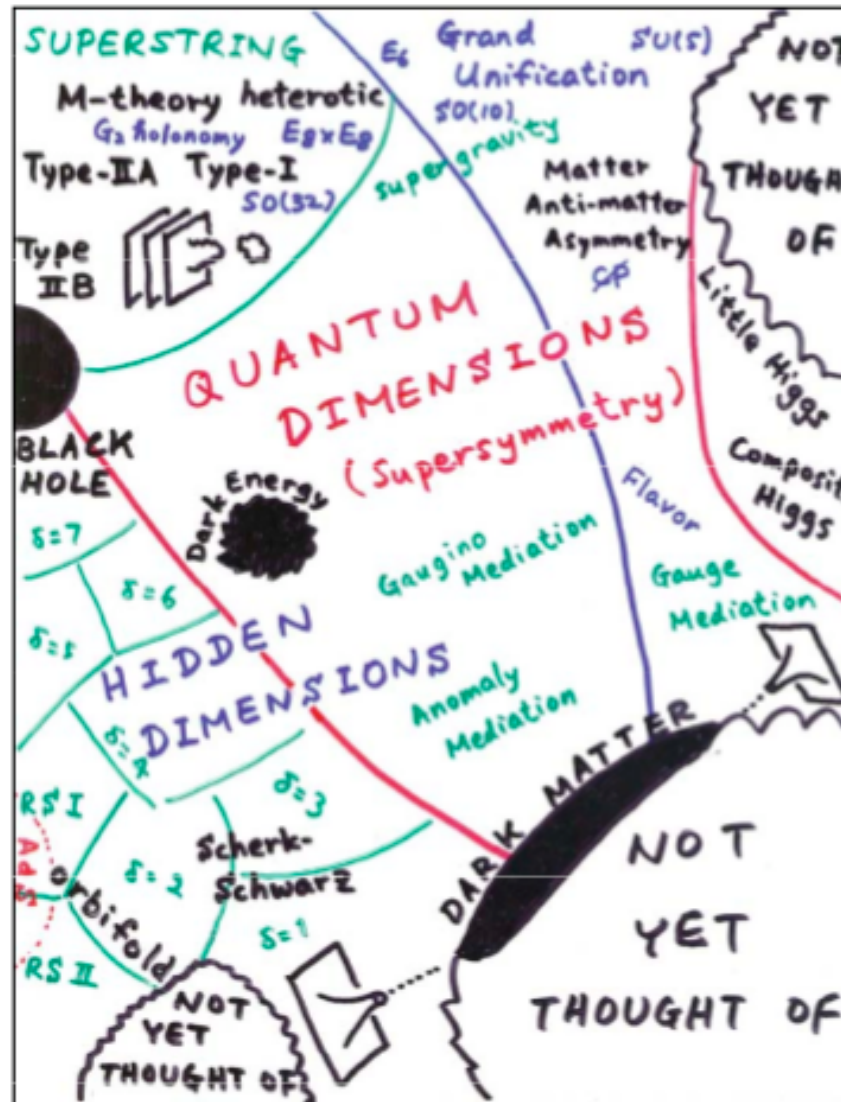 SUPERSTRING
M-theory heterotic
G₂ holonomy E8×E8
Type-IIA Type-I
SO(32)
Type
IIB
E₆
Grand
Unification
SU(5)
SO(10)
supergravity
Matter
Anti-matter
Asymmetry
CP
NOT
YET
THOUGH
OF
Little Higgs
Composit
Higgs
QUANTUM
DIMENSIONS
(Supersymmetry)
BLACK
HOLE
Dark Energy
Flavor
Gaugino
Mediation
Gauge
Mediation
Anomaly
Mediation
δ=7
δ=6
δ=5
HIDDEN
DIMENSIONS
δ=4
δ=3
RSI
AdS
orbifold
δ=2
Scherk-
Schwarz
δ=1
RSII
DARK MATTER
NOT
YET
THOUGHT OF
NOT
YET
THOUGHT OF